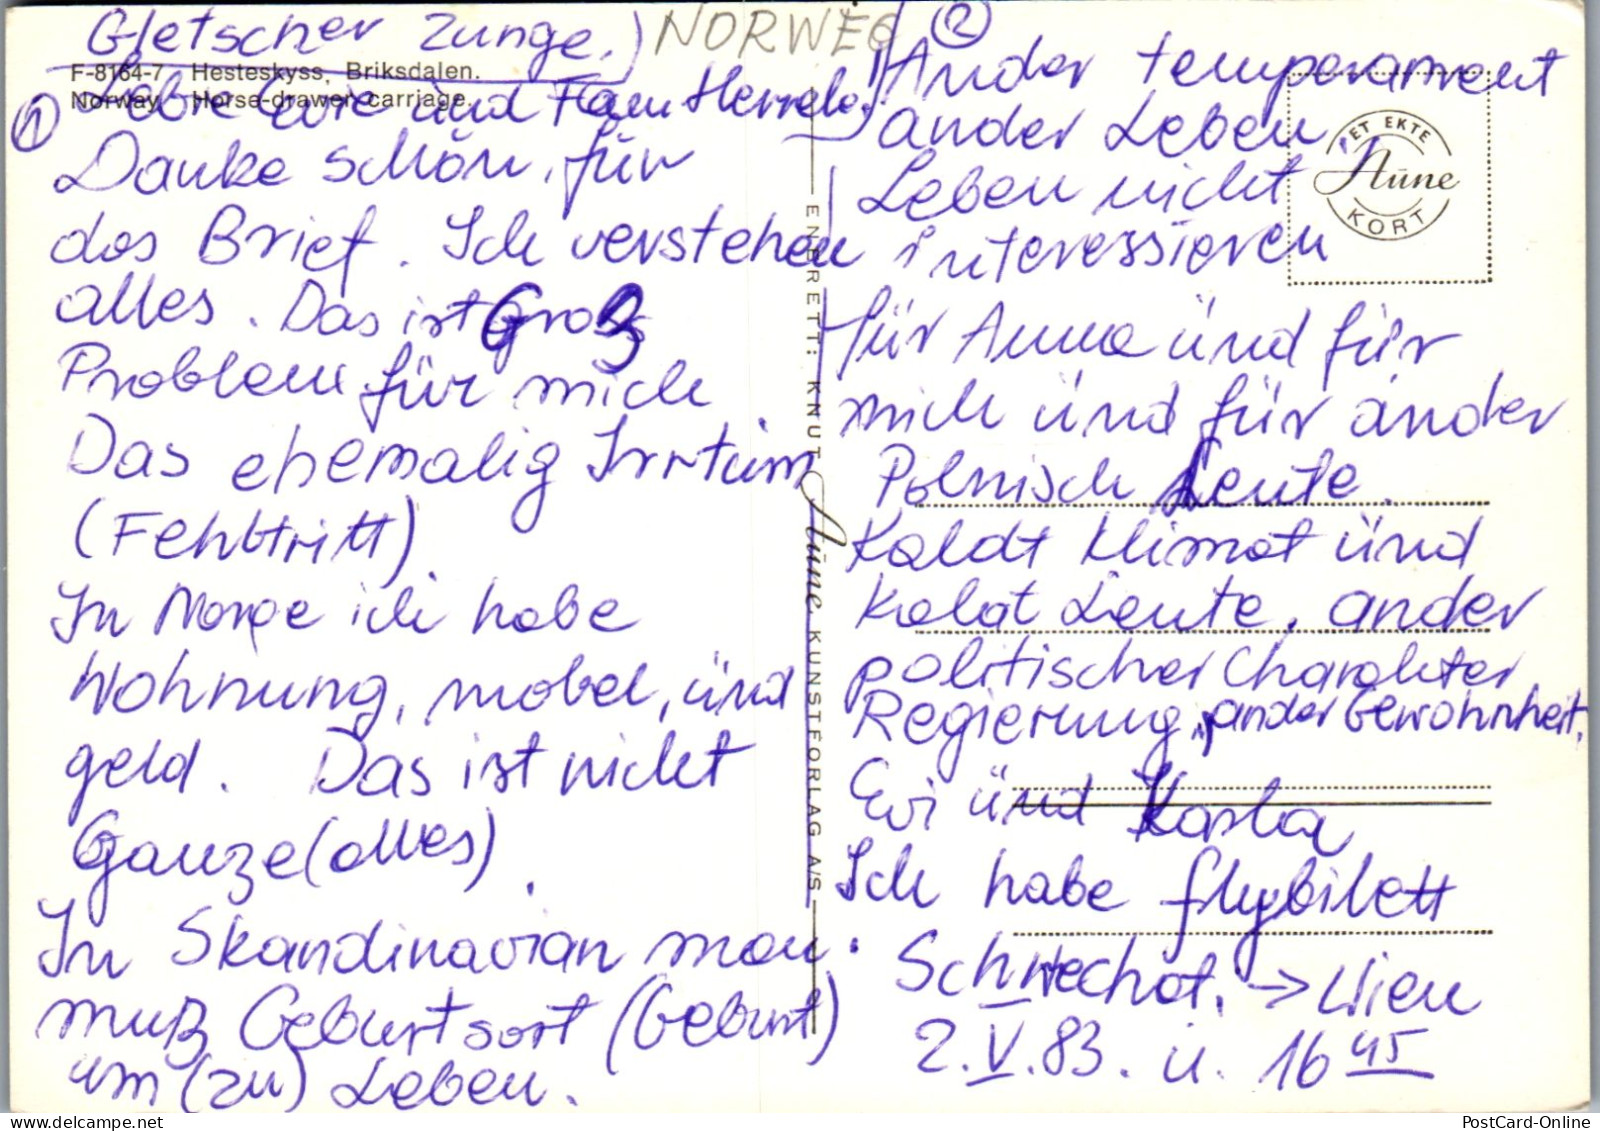 Gletscher Zunge.)
NORWEG
F-8164-7 Hesteskyss, Briksdalen.
Norway. Horse-drawen carriage.
① Liebe Evi und Fam Herrele.
Danke schön, für
das Brief. Ich verstehen
alles. Das ist Groß
Problem für mich
Das ehemalig Irrtüm
(Fehltritt)
In Norge ich habe
Wohnung, mobel, ünd
geld. Das ist nicht
Ganze (alles).
In Skandinavian man
muß Geburtsort (Geburt)
um (zu) Leben.
ENERETT: KNUT Aune KUNSTFORLAG A/S
②
Ander temperament
ander Leben,
Leben nicht
interessieren
für Anna ünd für
mich ünd für ander
Polnisch Leute.
Kaldt klimat ünd
kaldt Leute, ander
politischer Charakter
Regierung, ander Gewohnheit.
Evi ünd Karla
Ich habe flybilett
Schwechat. → Wien
2.V.83. u. 16 45
DET EKTE
Aune
KORT
PostCard-Online
www.delcampe.net